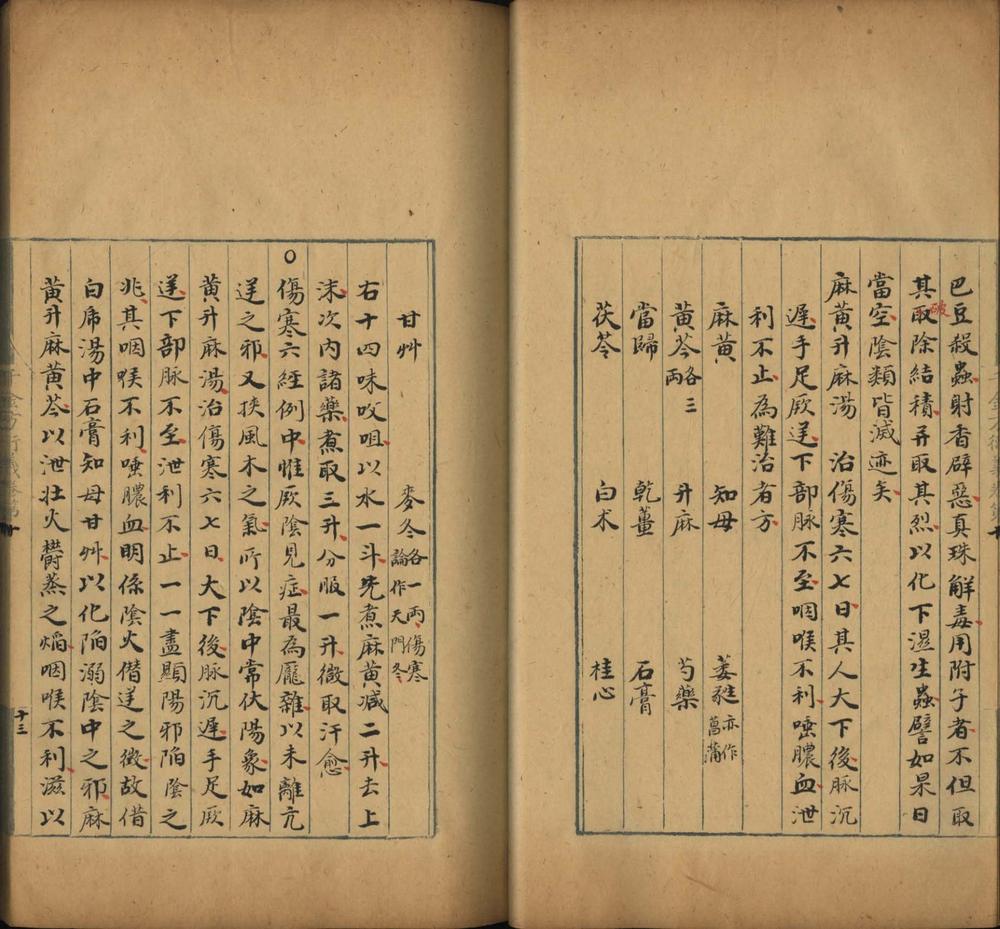 巴豆殺蟲射香辟惡真珠解毒用附子者不但取
其破除結積并取其烈以化下濕生蟲譬如杲日
當空陰類皆滅迹矣
麻黃升麻湯　治傷寒六七日其人大下後脈沉
遲手足厥逆下部脈不至咽喉不利唾膿血泄
利不止為難治者方
麻黃　知母　萎蕤亦作菖蒲
黃芩各三兩　升麻　芍藥
當歸　乾薑　石膏
茯苓　白术　桂心
甘艸　麥冬各一兩傷寒論作天門冬
右十四味㕮咀以水一斗先煮麻黃減二升去上
沫次內諸藥煮取三升分服一升微取汗愈
○傷寒六經例中惟厥陰見症最為龐雜以未離亢
逆之邪又挾風木之氣所以陰中常伏陽象如麻
黃升麻湯治傷寒六七日大下後脈沉遲手足厥
逆下部脈不至泄利不止一一盡顯陽邪陷陰之
兆其咽喉不利唾膿血明係陰火僭逆之徵故借
白虎湯中石膏知母甘艸以化陷溺陰中之邪麻
黃升麻黃芩以泄壯火鬱蒸之焰咽喉不利滋以
十三